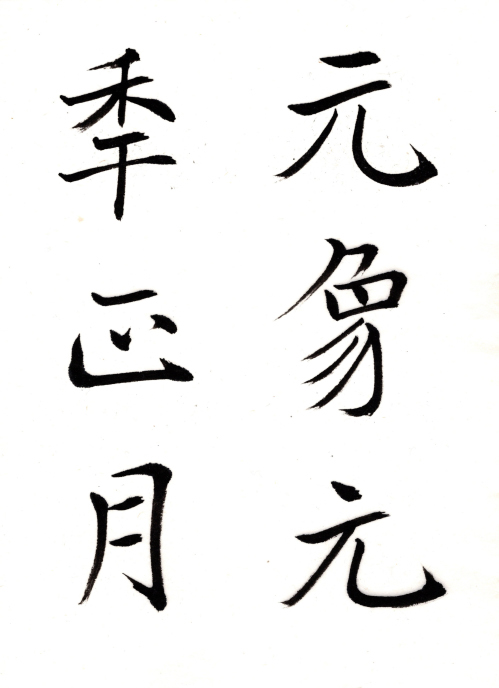 元象元
秊正月